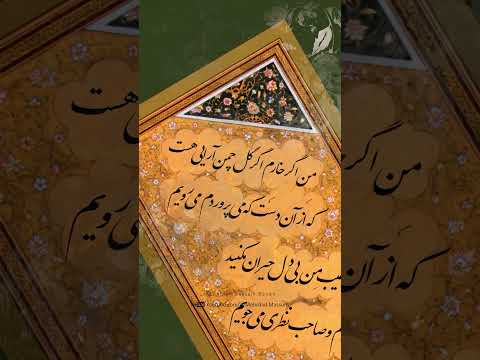 من اگر خارم اگر گل چمن آرایی هست
که از آن دست که می پروردم می رویم
یب من بی دل حیران مکنید
م و صاحب نظری می جویم